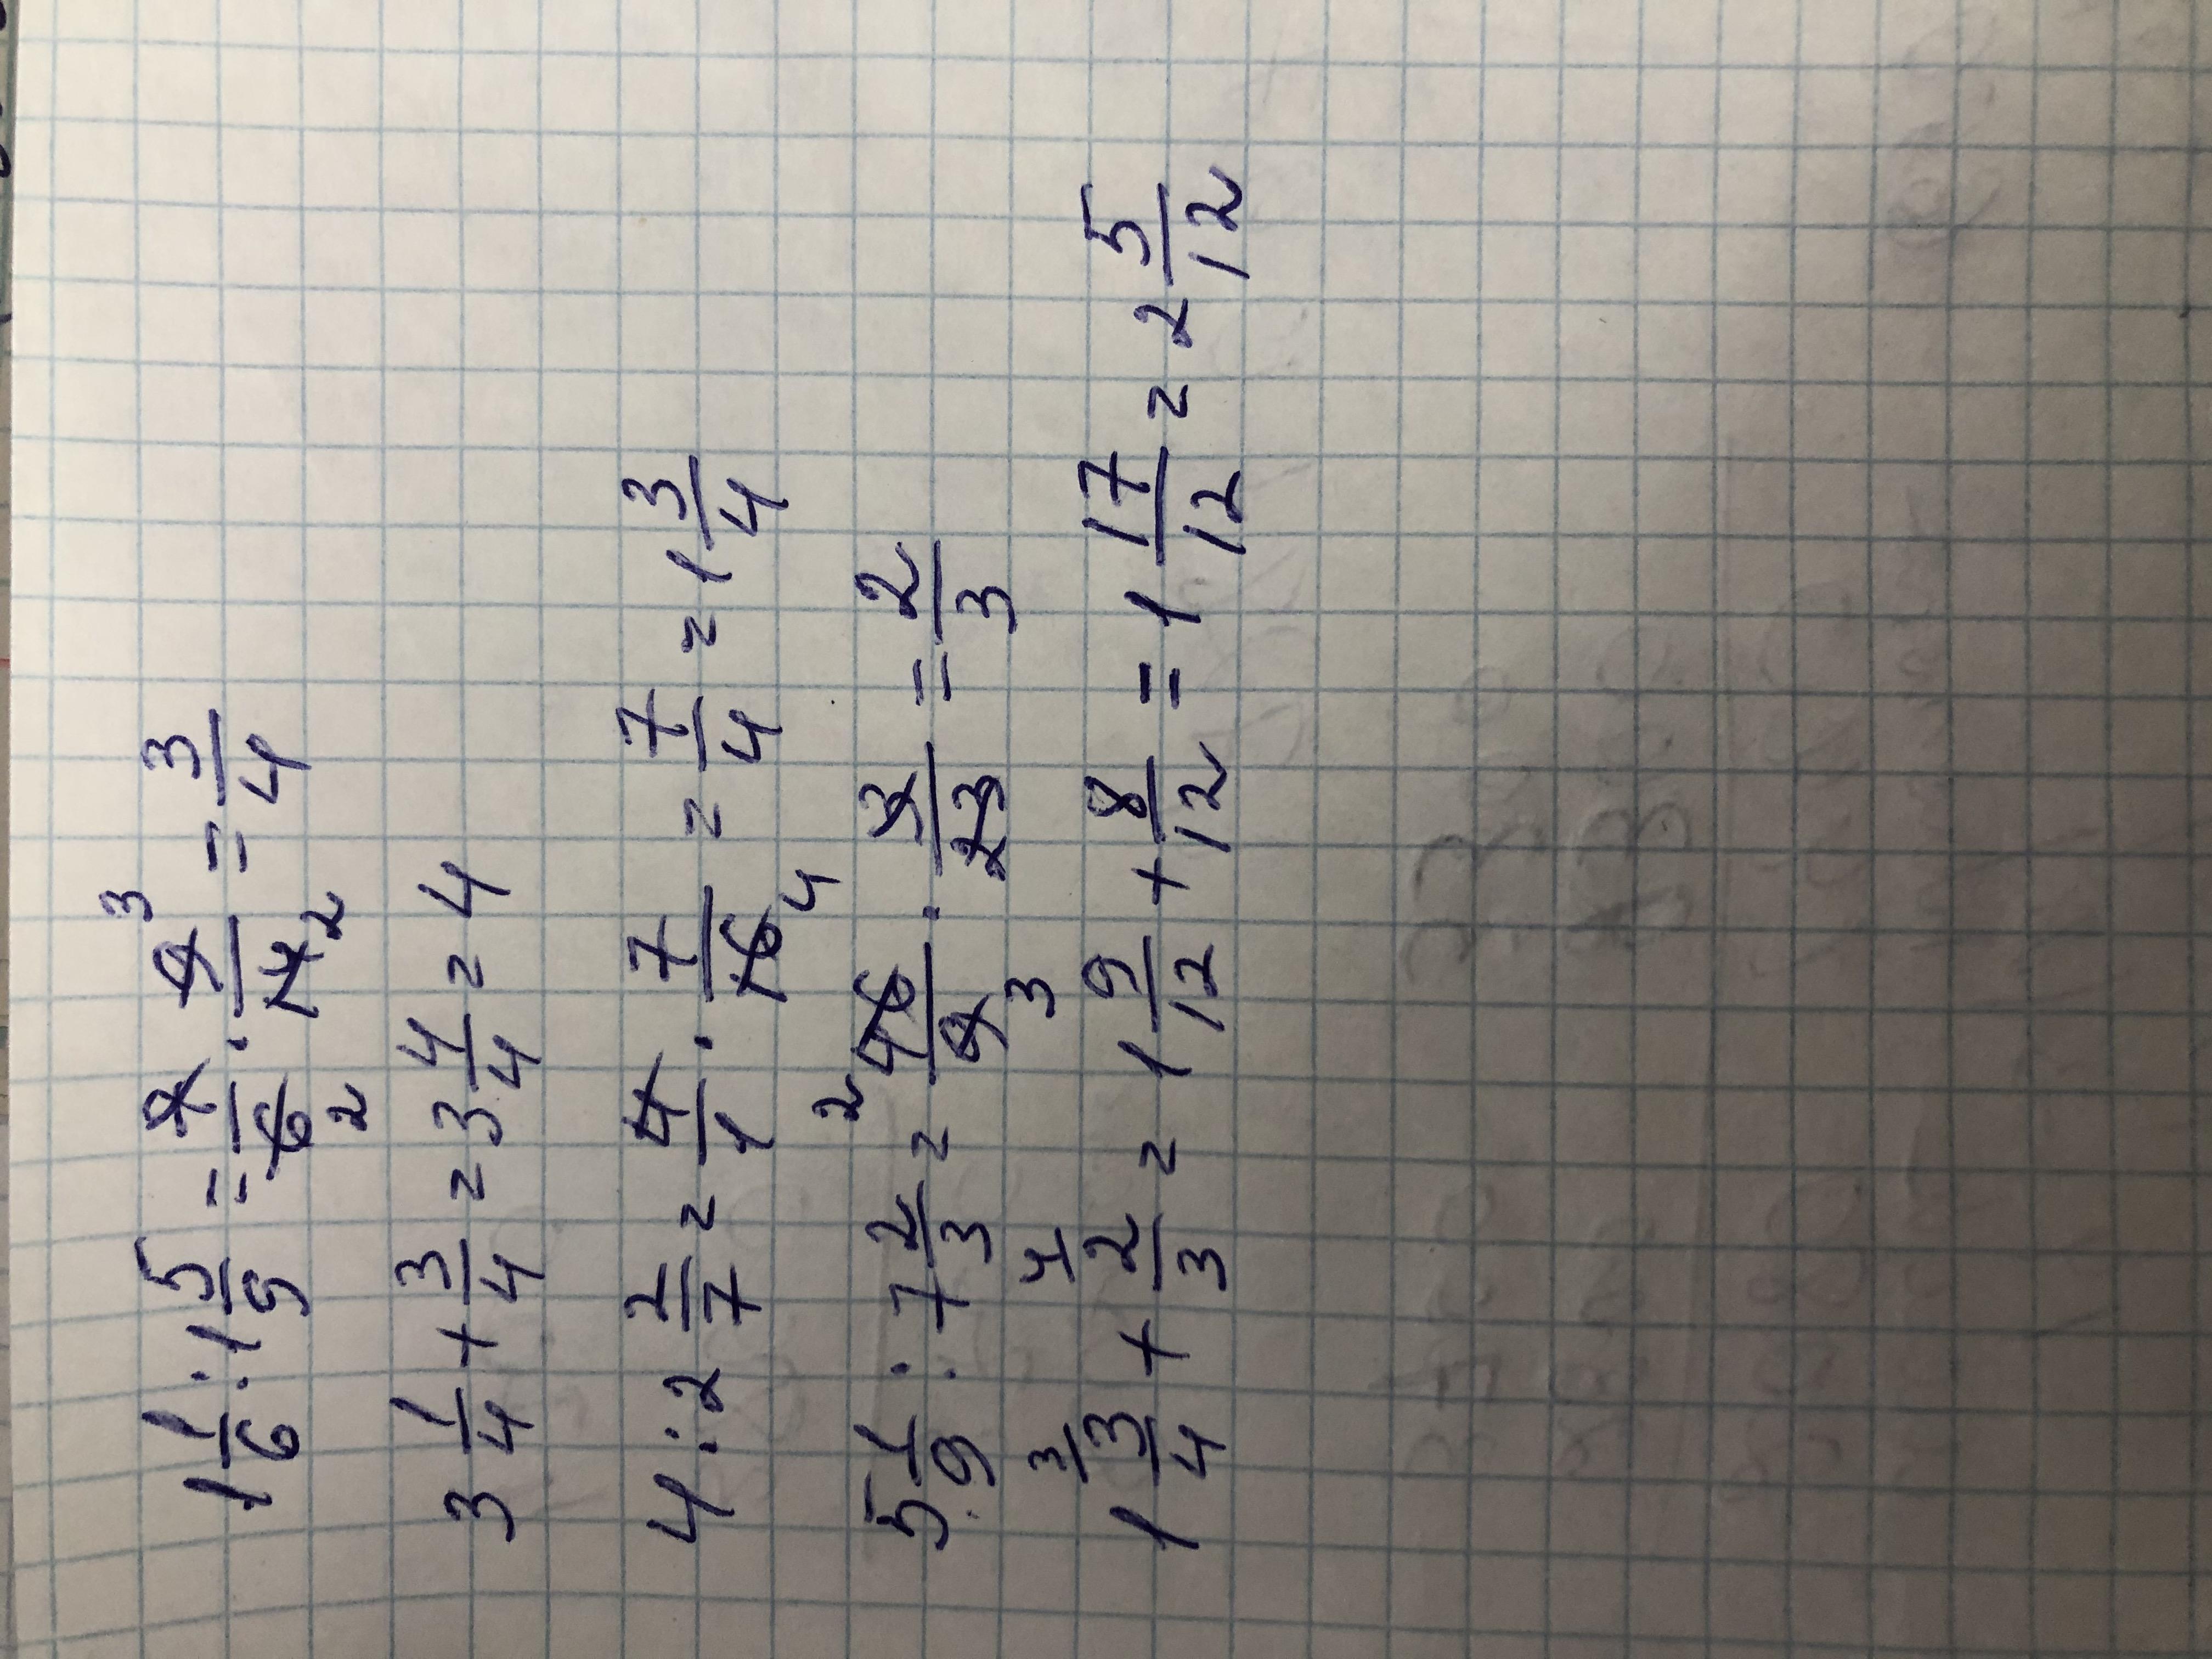 1 1/6 : 1 5/9 = 7/6 · 9/14 = 3/4 3 2 2
3 1/4 + 3/4 = 3 4/4 = 4
4 : 2 2/7 = 4/1 · 7/16 = 7/4 = 1 3/4 4
5 1/9 : 7 2/3 = 46/9 · 3/23 = 2/3 2 3
1 3/4 + 2/3 = 1 9/12 + 8/12 = 1 17/12 = 2 5/12 3 4